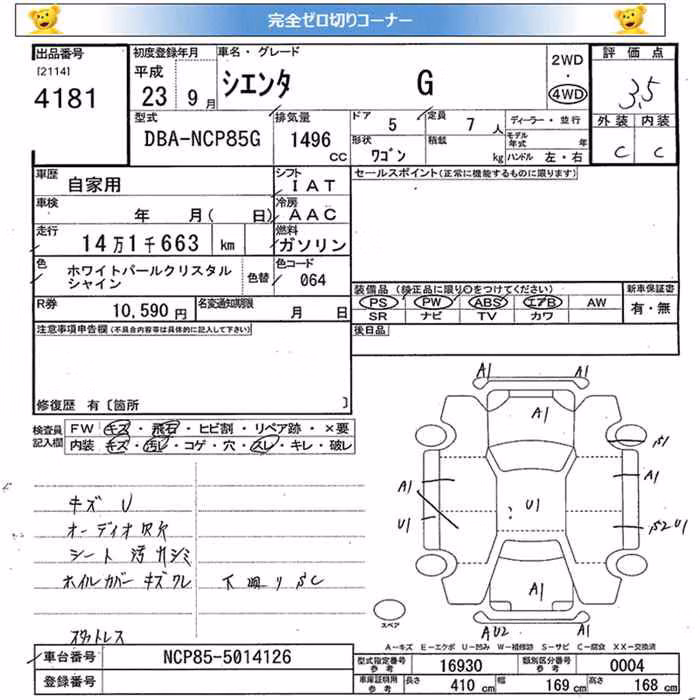 完全ゼロ切りコーナー
出品番号 初度登録年月 車名・グレード 2WD 評価点
[2114] 平成 シエンタ G ・ 3.5
4181 23年 9月 4WD
型式 排気量 ドア 5 定員 7人 ディーラー・並行 外装 内装
DBA-NCP85G 1496 CC 形状 ワゴン 積載 kg モデル年式 年 C C
ハンドル 左・右
車歴 自家用 シフト IAT セールスポイント(正常に機能するものに限ります)
車検 年 月( 日) 冷房 AAC
走行 14万1千663 km 燃料 ガソリン
色 ホワイトパールクリスタル 色替 色コード 064
シャイン
装備品 (純正品に限り○をつけてください) 新車保証書
R券 10,590円 名変通知期限 月 日 PS PW ABS エアB AW 有・無
SR ナビ TV カワ
注意事項申告欄(不具合内容等は具体的に記入して下さい) 後日品
修復歴 有〔箇所 〕
検査員 FW キズ・飛石・ヒビ割・リペア跡・×要
記入欄 内装 キズ・汚レ・コゲ・穴・スレ・キレ・破レ
A1 A1
A1
S1
A1 A1
U1 U1 S2 U1
A1
AU2 A1
キズ U
オーディオ欠
シート 汚 シミ
ホイルカバー キズ ワレ 下廻り SC
スタットレス
スペア
A-キズ E-エクボ U-凹み W-補修跡 S-サビ C-腐食 XX-交換済
車台番号 NCP85-5014126 型式指定番号 参考 16930 類別区分番号 参考 0004
登録番号 車庫証明用 参考 長さ 410 cm 幅 169 cm 高さ 168 cm